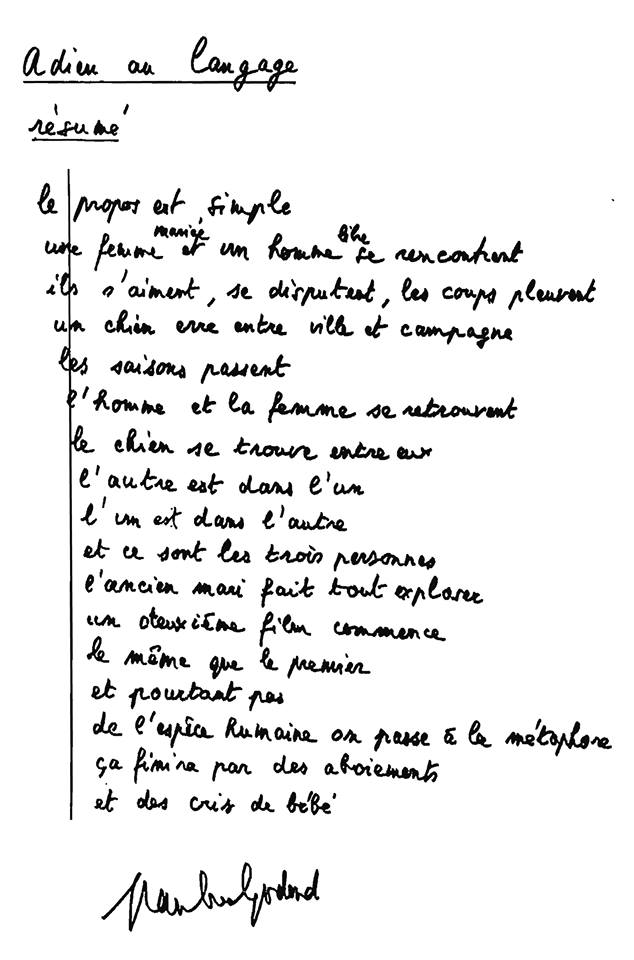 Adieu au langage
résumé
le propos est simple
une femme mariée et un homme libre se rencontrent
ils s'aiment, se disputent, les coups pleuvent
un chien erre entre ville et campagne
les saisons passent
l'homme et la femme se retrouvent
le chien se trouve entre eux
l'autre est dans l'un
l'un est dans l'autre
et ce sont les trois personnes
l'ancien mari fait tout exploser
un deuxième film commence
le même que le premier
et pourtant pas
de l'espèce humaine on passe à la métaphore
ça finira par des aboiements
et des cris de bébé
Jean-Luc Godard